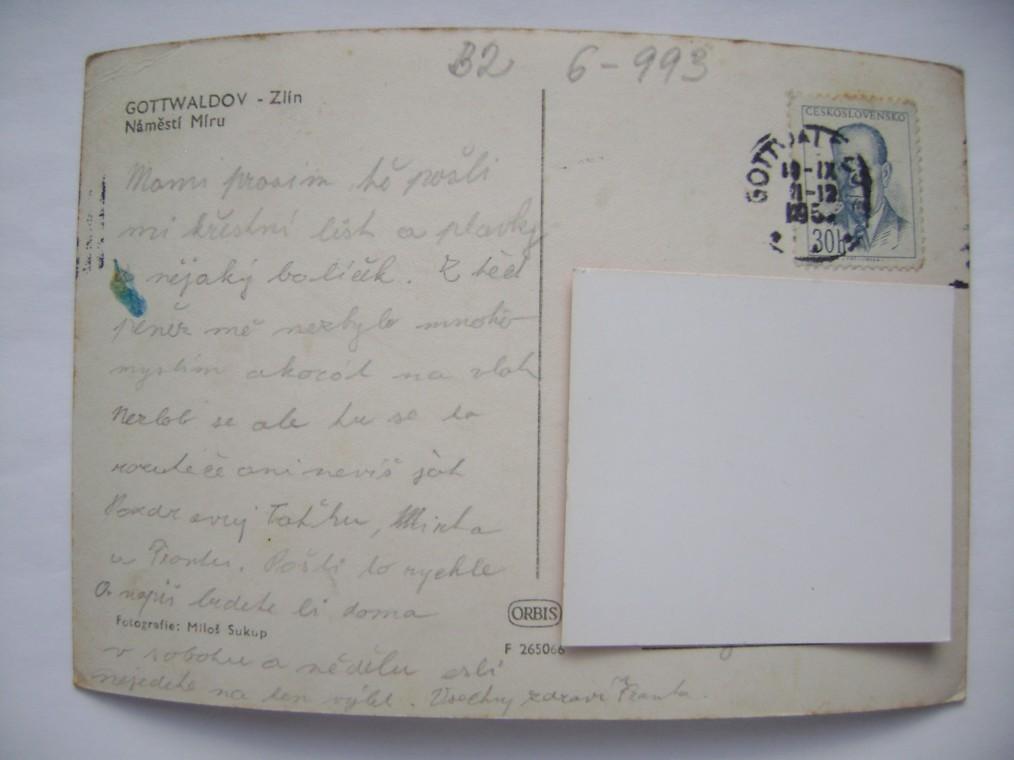 B2 6-993
GOTTWALDOV - Zlín
Náměstí Míru
ČESKOSLOVENSKO
30h
Mami prosím tě pošli
mi křestní list a plavky
nějaký balíček. Z těch
peněz mě nezbylo mnoho
myslím akorát na vlak
Nezlob se ale tu se to
rozuteče ani nevíš jak
Pozdravuj Taťku, Mirka
a Frantu. Pošli to rychle
a napiš budete li doma
Fotografie: Miloš Sukup
v sobotu a neděli esli
nejedete na ten výlet. Všechny zdraví Franta.
ORBIS
F 265066